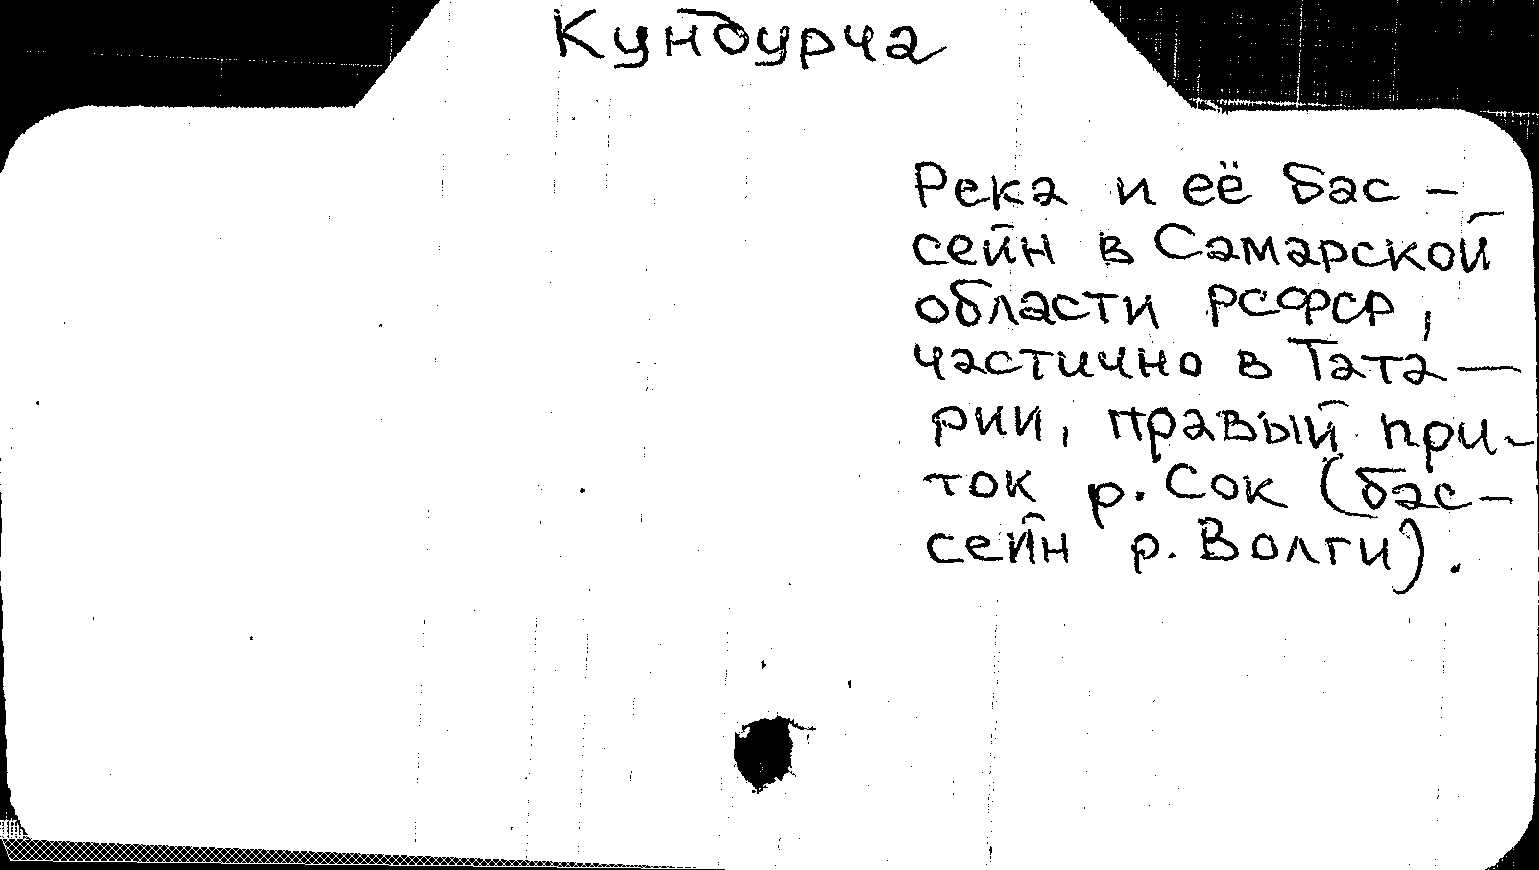 Кундурча
Река и её бас-
сейн в Самарской
области РСФСР,
частично в Тата-
рии, правый при-
ток р. Сок (бас-
сейн р. Волги).